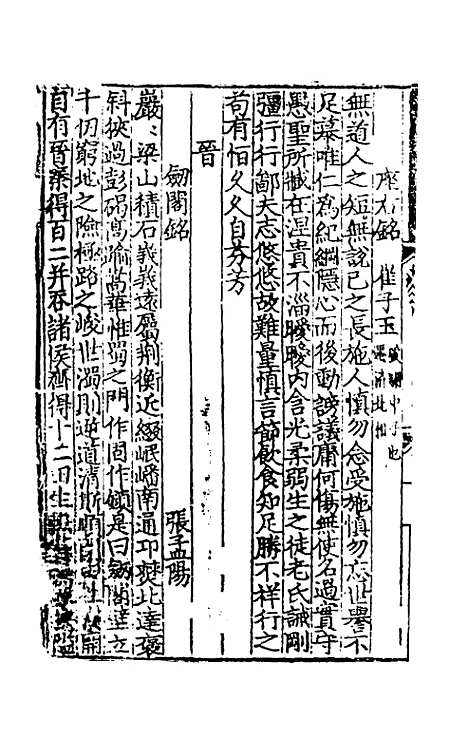 座右銘 崔子玉
無道人之短無說己之長施人慎勿念受施慎勿忘世譽不
足慕唯仁為紀綱隱心而後動謗議庸何傷無使名過實守
愚聖所臧在涅貴不淄曖曖內含光柔弱生之徒老氏誡剛
彊行行鄙夫志悠悠故難量慎言節飲食知足勝不祥行之
苟有恒久久自芬芳
晉
劒閣銘 張孟陽
巖〻梁山積石峩峩遠屬荆衡近綴岷嶓南通卭僰北達褒
斜狹過彭碣高踰嵩華惟蜀之門作固作鎮是曰劒閣壁立
千仞窮地之險極路之峻世濁則逆道清斯順開
自有晉秦得百二并吞諸侯齊得十二田生